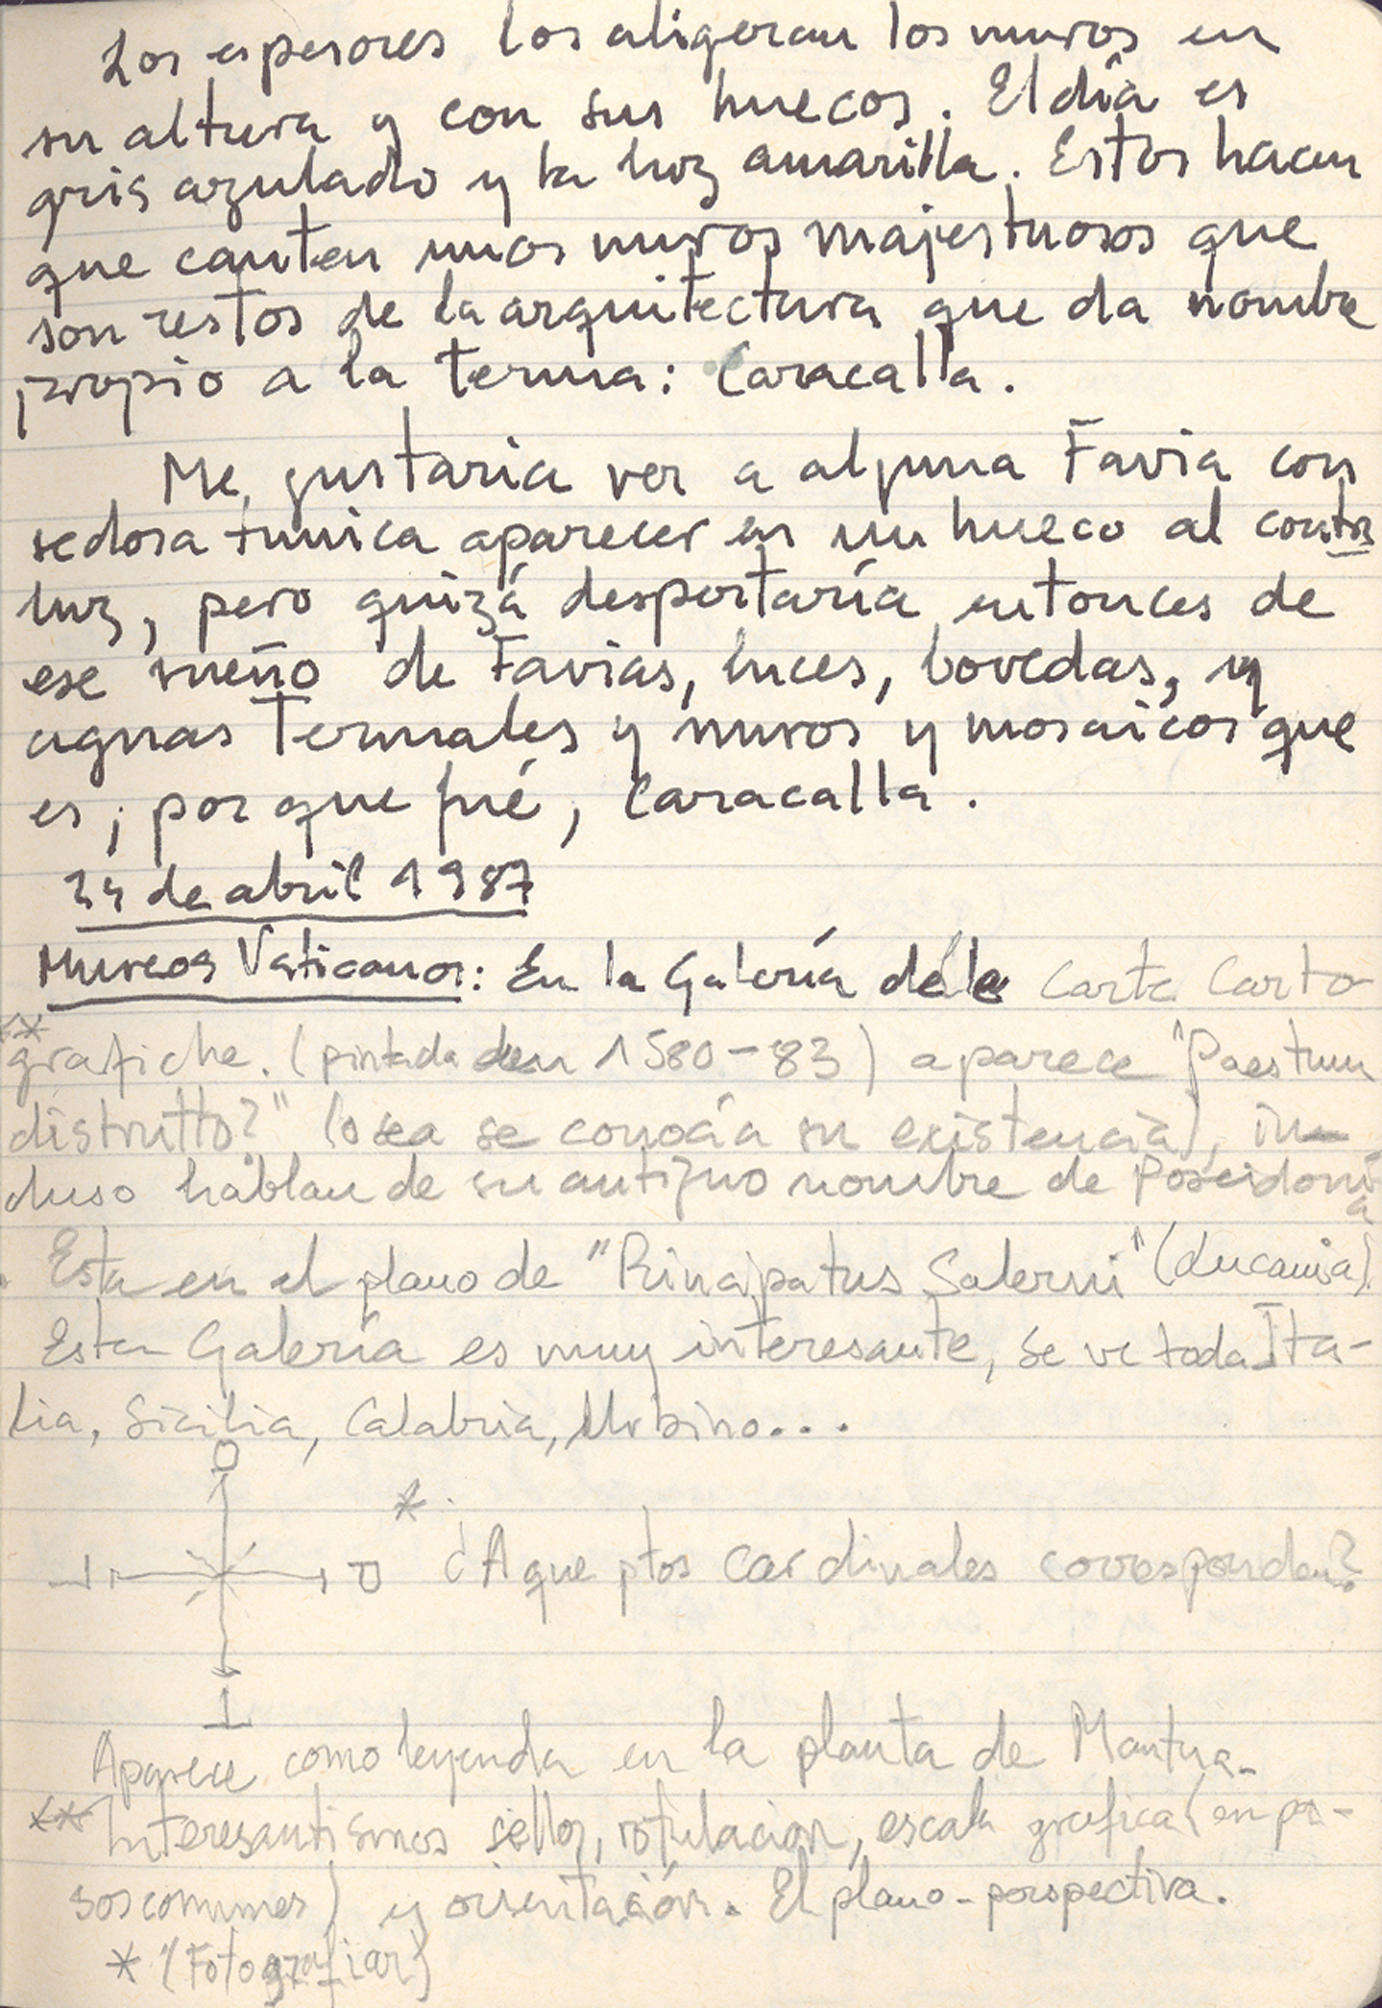 Los espesores los aligeran los muros en
su altura y con sus huecos. El día es
gris azulado y la luz amarilla. Estos hacen
que canten unos muros majestuosos que
son restos de la arquitectura que da nombre
propio a la terma: Caracalla.
Me gustaria ver a alguna Favia con
sedosa tunica aparecer en un hueco al contra
luz, pero quizá despertaría entonces de
ese sueño de Favias, luces, bovedas, y
aguas termales y muros y mosaicos que
es, por que fué, Caracalla.
24 de abril 1987
Museos Vaticanos: En la Galería de le Carte Carto
** grafiche. (pintada en 1580-83) aparece "Paestum
distrutto?" (o sea se conocía su existencia), in-
cluso hablan de su antiguo nombre de Poseidonia
Esta en el plano de "Rincipatus Salerni" (Lucania).
Esta Galería es muy interesante, se ve toda Ita-
lia, Sicilia, Calabria, Urbino...
O
*
I P ¿A que ptos cardinales corresponden?
I
Aparece como leyenda en la planta de Mantua.
** Interesantisimos sellos, rotulacion, escala grafica (en pa-
sos comunes) y orientación. El plano-perspectiva.
* (Fotografiar)